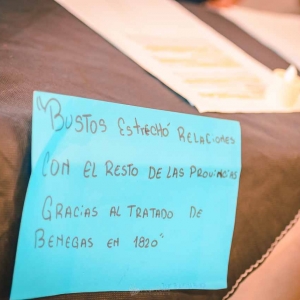 "Bustos Estrechó Relaciones
con el resto de las Provincias
Gracias al tratado de
Benegas en 1820"